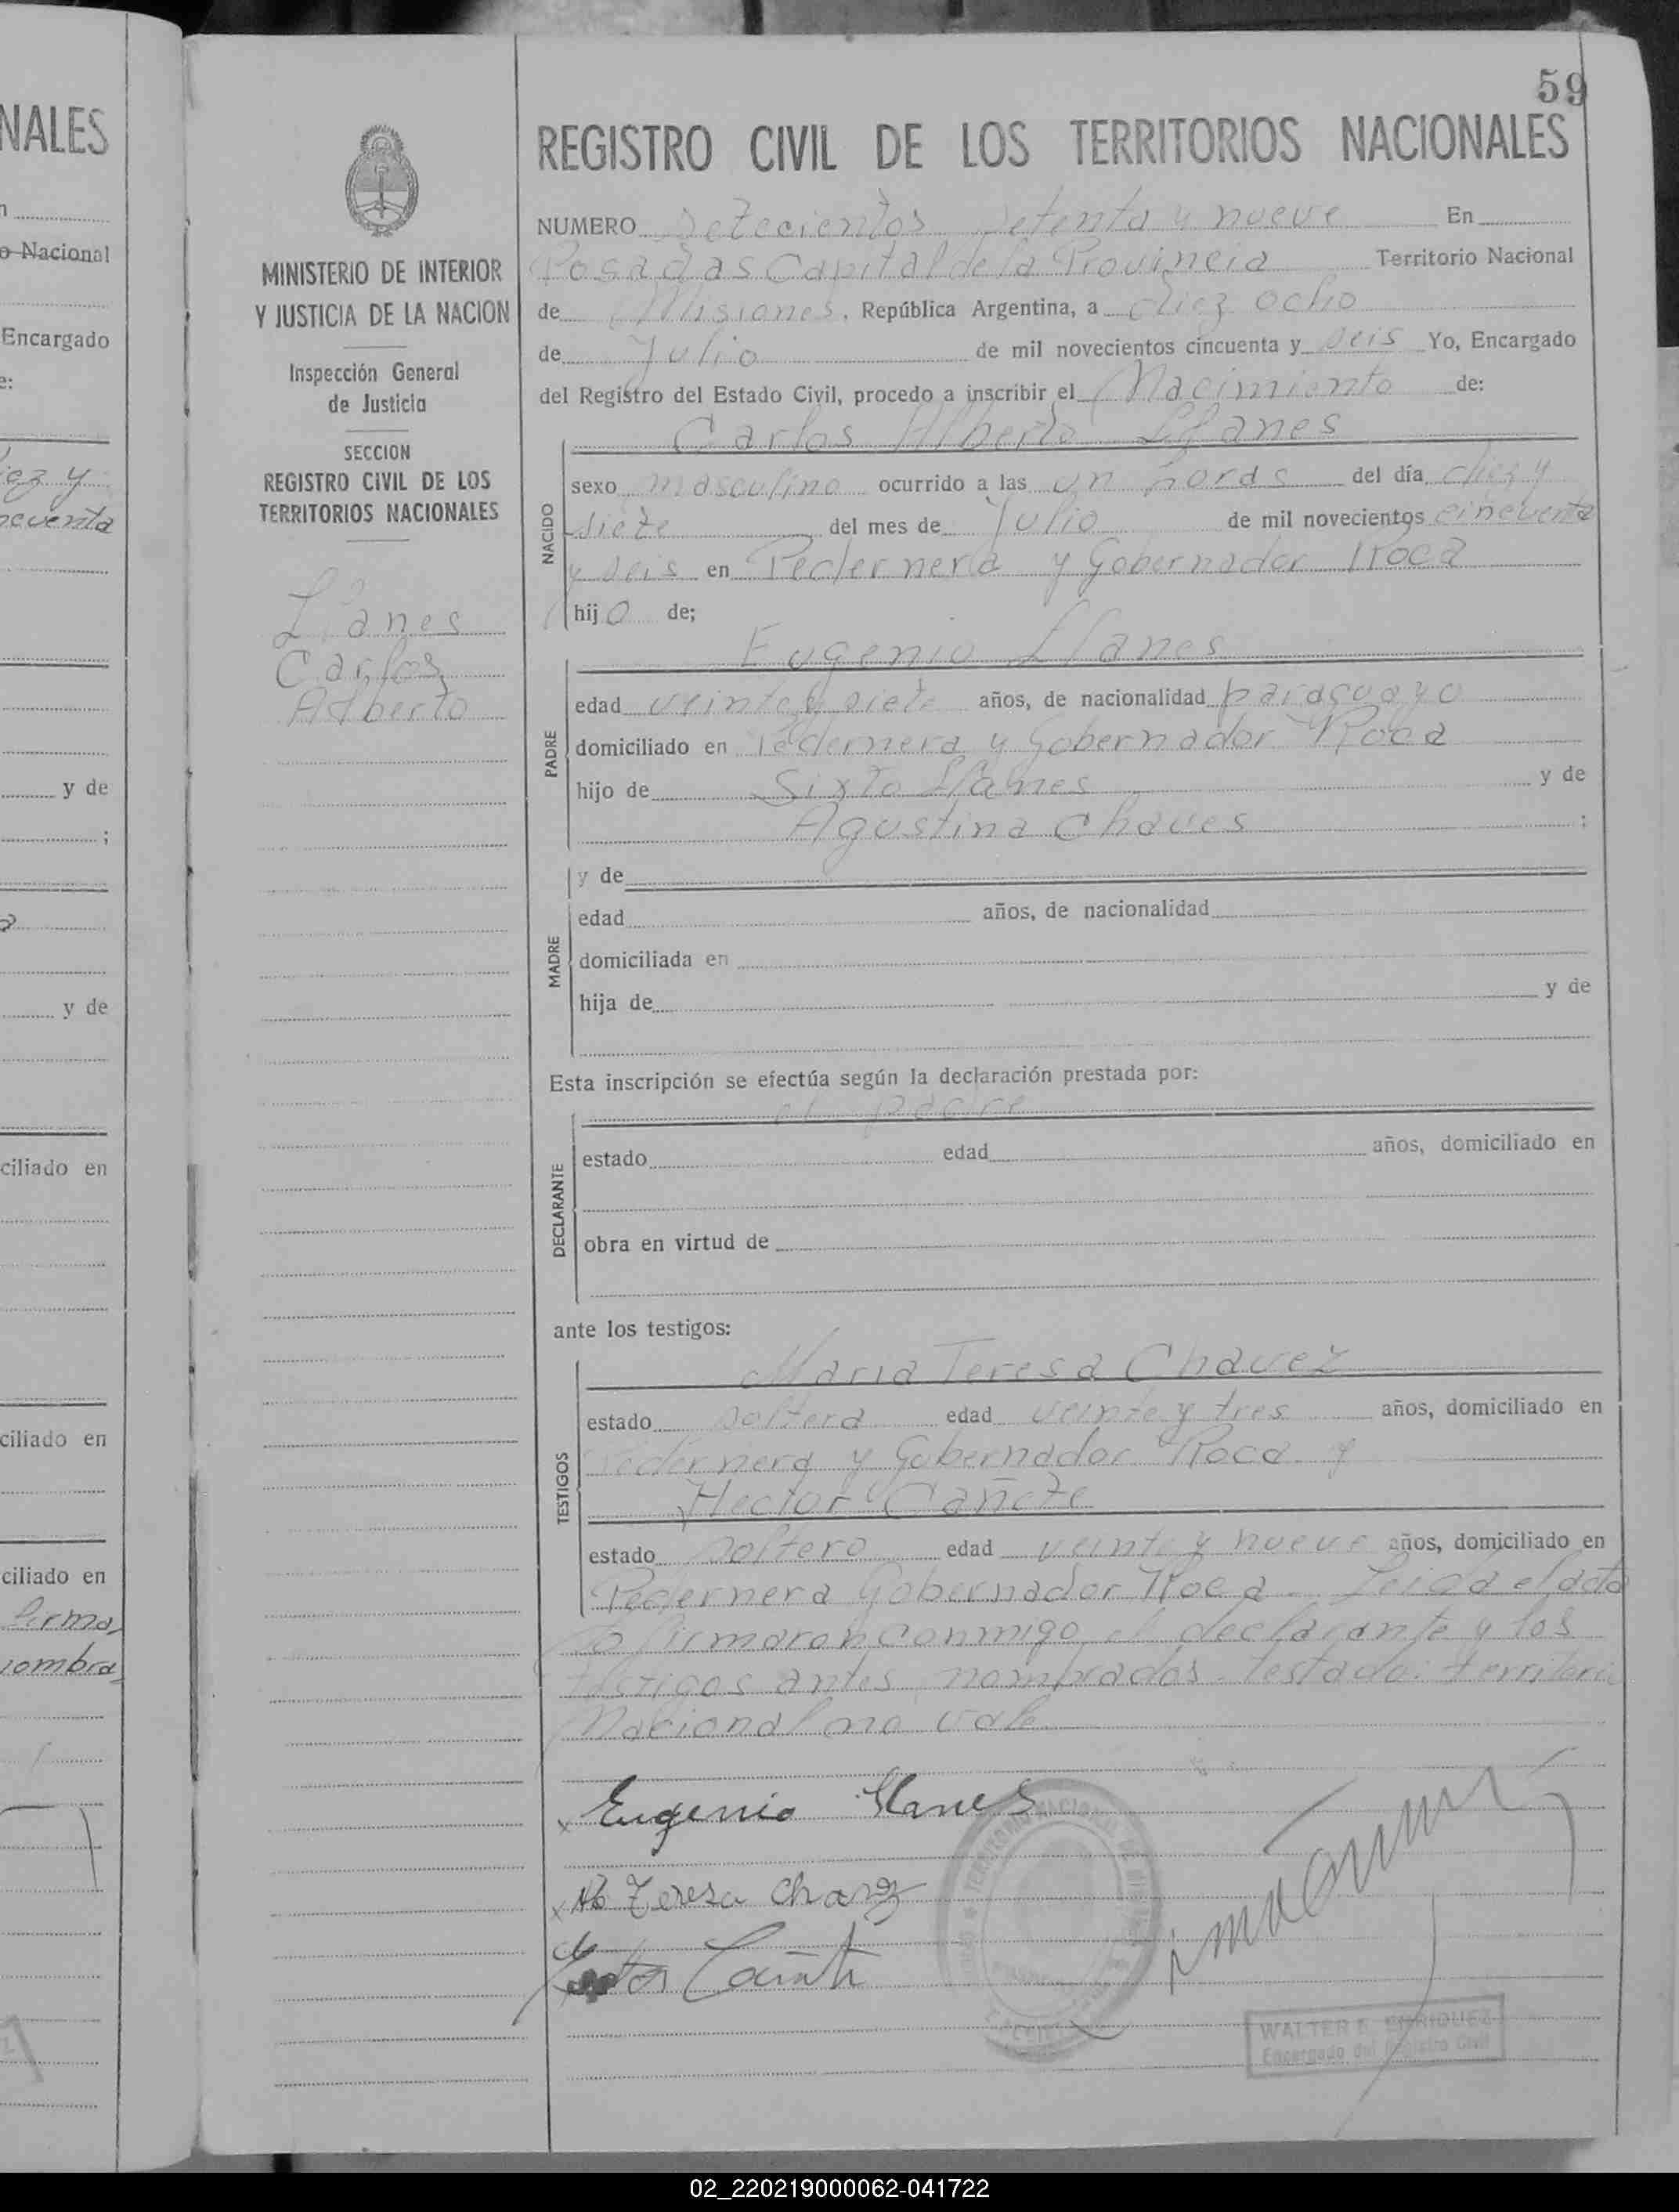 NALES
o Nacional
Encargado
y de
y de
ciliado en
ciliado en
ciliado en
firma
nombra
59
REGISTRO CIVIL DE LOS TERRITORIOS NACIONALES
MINISTERIO DE INTERIOR
Y JUSTICIA DE LA NACION
Inspección General
de Justicia
SECCION
REGISTRO CIVIL DE LOS
TERRITORIOS NACIONALES
Llanes
Carlos
Alberto
NUMERO Setecientos setenta y nueve En
Posadas Capital de la Provincia Territorio Nacional
de Misiones, República Argentina, a diez ocho
de Julio de mil novecientos cincuenta y seis Yo, Encargado
del Registro del Estado Civil, procedo a inscribir el Nacimiento de:
Carlos Alberto Llanes
NACIDO
sexo masculino ocurrido a las un horas del día diez y
siete del mes de Julio de mil novecientos cincuenta
y seis en Pedernera y Gobernador Roca
hijo de;
Eugenio Llanes
PADRE
edad veinte y siete años, de nacionalidad paraguayo
domiciliado en Pedernera y Gobernador Roca
hijo de Sixto Llanes y de
Agustina Chaves ;
y de
MADRE
edad años, de nacionalidad
domiciliada en
hija de y de
Esta inscripción se efectúa según la declaración prestada por:
el padre
DECLARANTE
estado edad años, domiciliado en
obra en virtud de
ante los testigos:
Maria Teresa Chavez
TESTIGOS
estado soltera edad veinte y tres años, domiciliado en
Pedernera y Gobernador Roca y
Hector Cañete
estado soltero edad veinte y nueve años, domiciliado en
Pedernera Gobernador Roca. Leida el acta
la firmaron conmigo el declarante y los
testigos antes nombrados - testado: territorio
Nacional no vale
Eugenio Llanes
Teresa Chavez
WALTER E. ENRIQUEZ
Encargado del Registro Civil
02_220219000062-041722